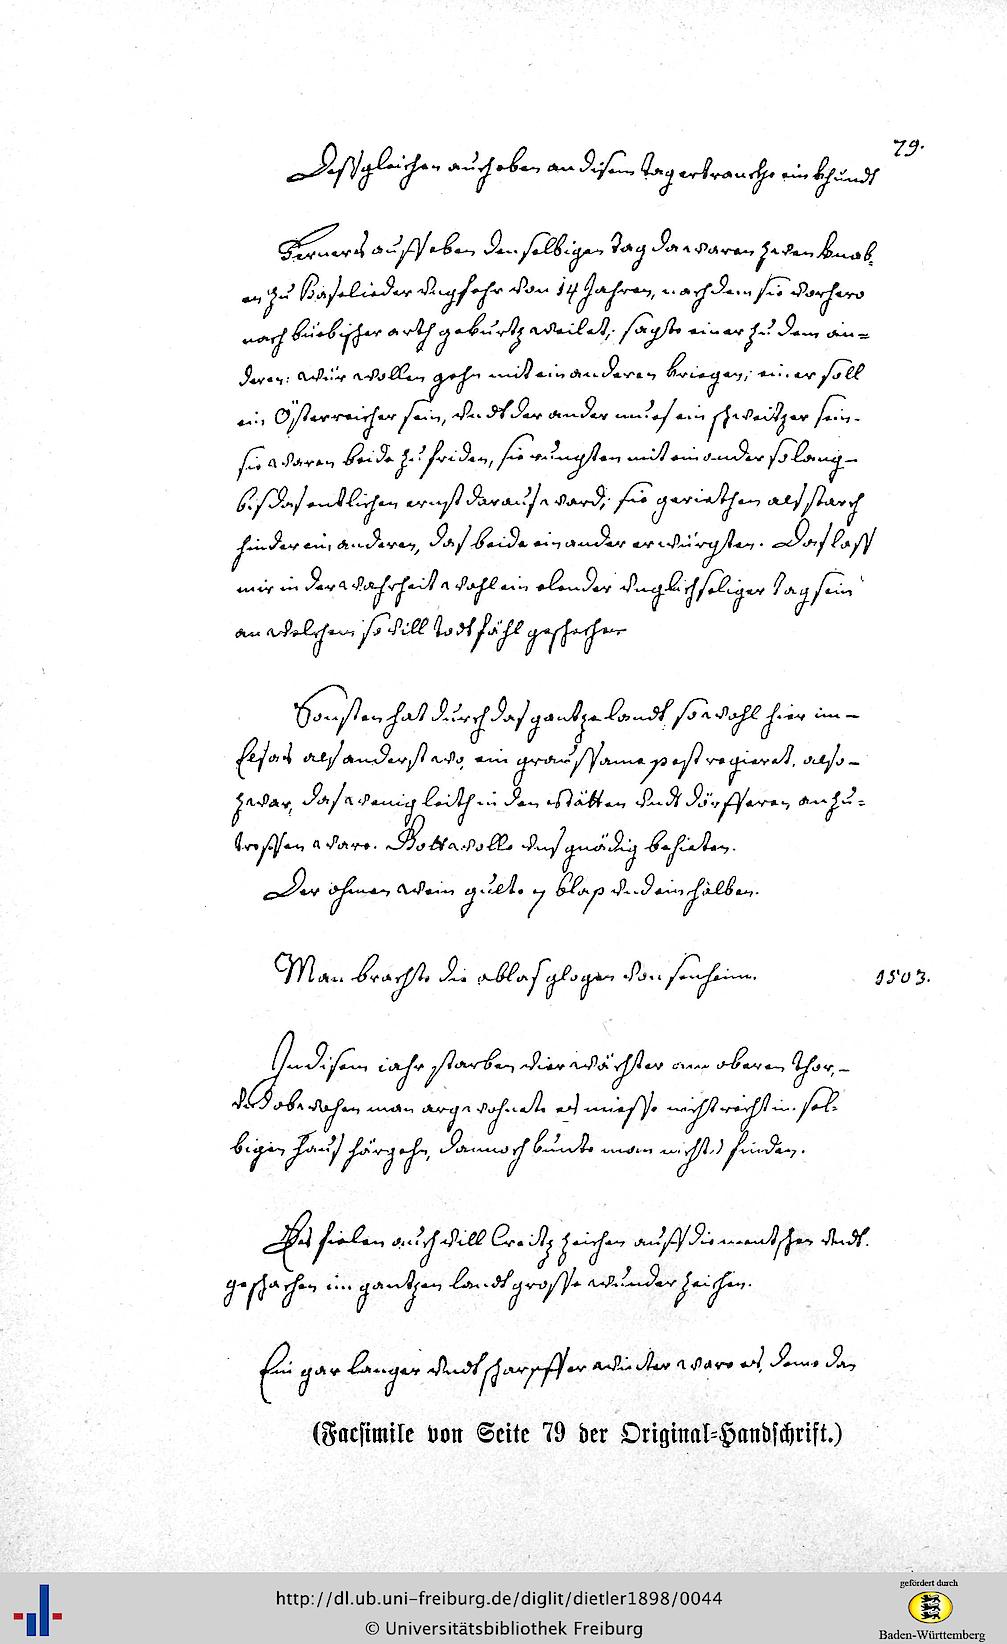 79.
Dessgleichen auch eben an disem tag ertranckhe ein khundt
Ferners auff eben denselbigen tag da waren zwen knab-
en zu Baselieder ungfehr von 14 Jahren, nach dem sie vorhero
nach buebischer arth gekurtzweilet, sagte einer zu dem an-
deren: wür wollen gehn mit einanderen kriegen, einer soll
ein Österreicher sein, undt der ander mues ein schweitzer sein.
sie waren beide zu friden, sie rungten mit einander so lang-
bis das entlichen ernst daraus ward, sie geriethen als starch
hinder ein anderen, das beide ein ander erwürgten. Das lass
mir in der wahrheit wohl ein elender unglickhseliger tag sein
an welchem so vill todtfähl geschechen
Sonsten hat durch das gantze landt, so wohl hier im-
Elsas als anderst wo, ein graussame pest regieret, also-
zwar, das wenig leith in den stätten undt dörfferen anzu-
treffen ware. Gott wolle uns gnädig behieten.
Der ohmen wein gulte 7 blap. und ein halben.
Man brachte die ablas glogen von senheim.
1503.
In disem iahr starben vier wächter am oberen thor,-
und obwohen man argewohnete es miesse nicht recht in sel-
bigen haus härgehn, dannoch kunte man nichts finden.
Es fielen auch vill Creitz zeichen auff die mentschen undt.
geschachen im gantzen landt grosse wunder zeichen.
Ein gar langer undt scharpffer winter ware es, deme da
(Facsimile von Seite 79 der Original-Handschrift.)
http://dl.ub.uni-freiburg.de/diglit/dietler1898/0044
© Universitätsbibliothek Freiburg
gefördert durch
Baden-Württemberg